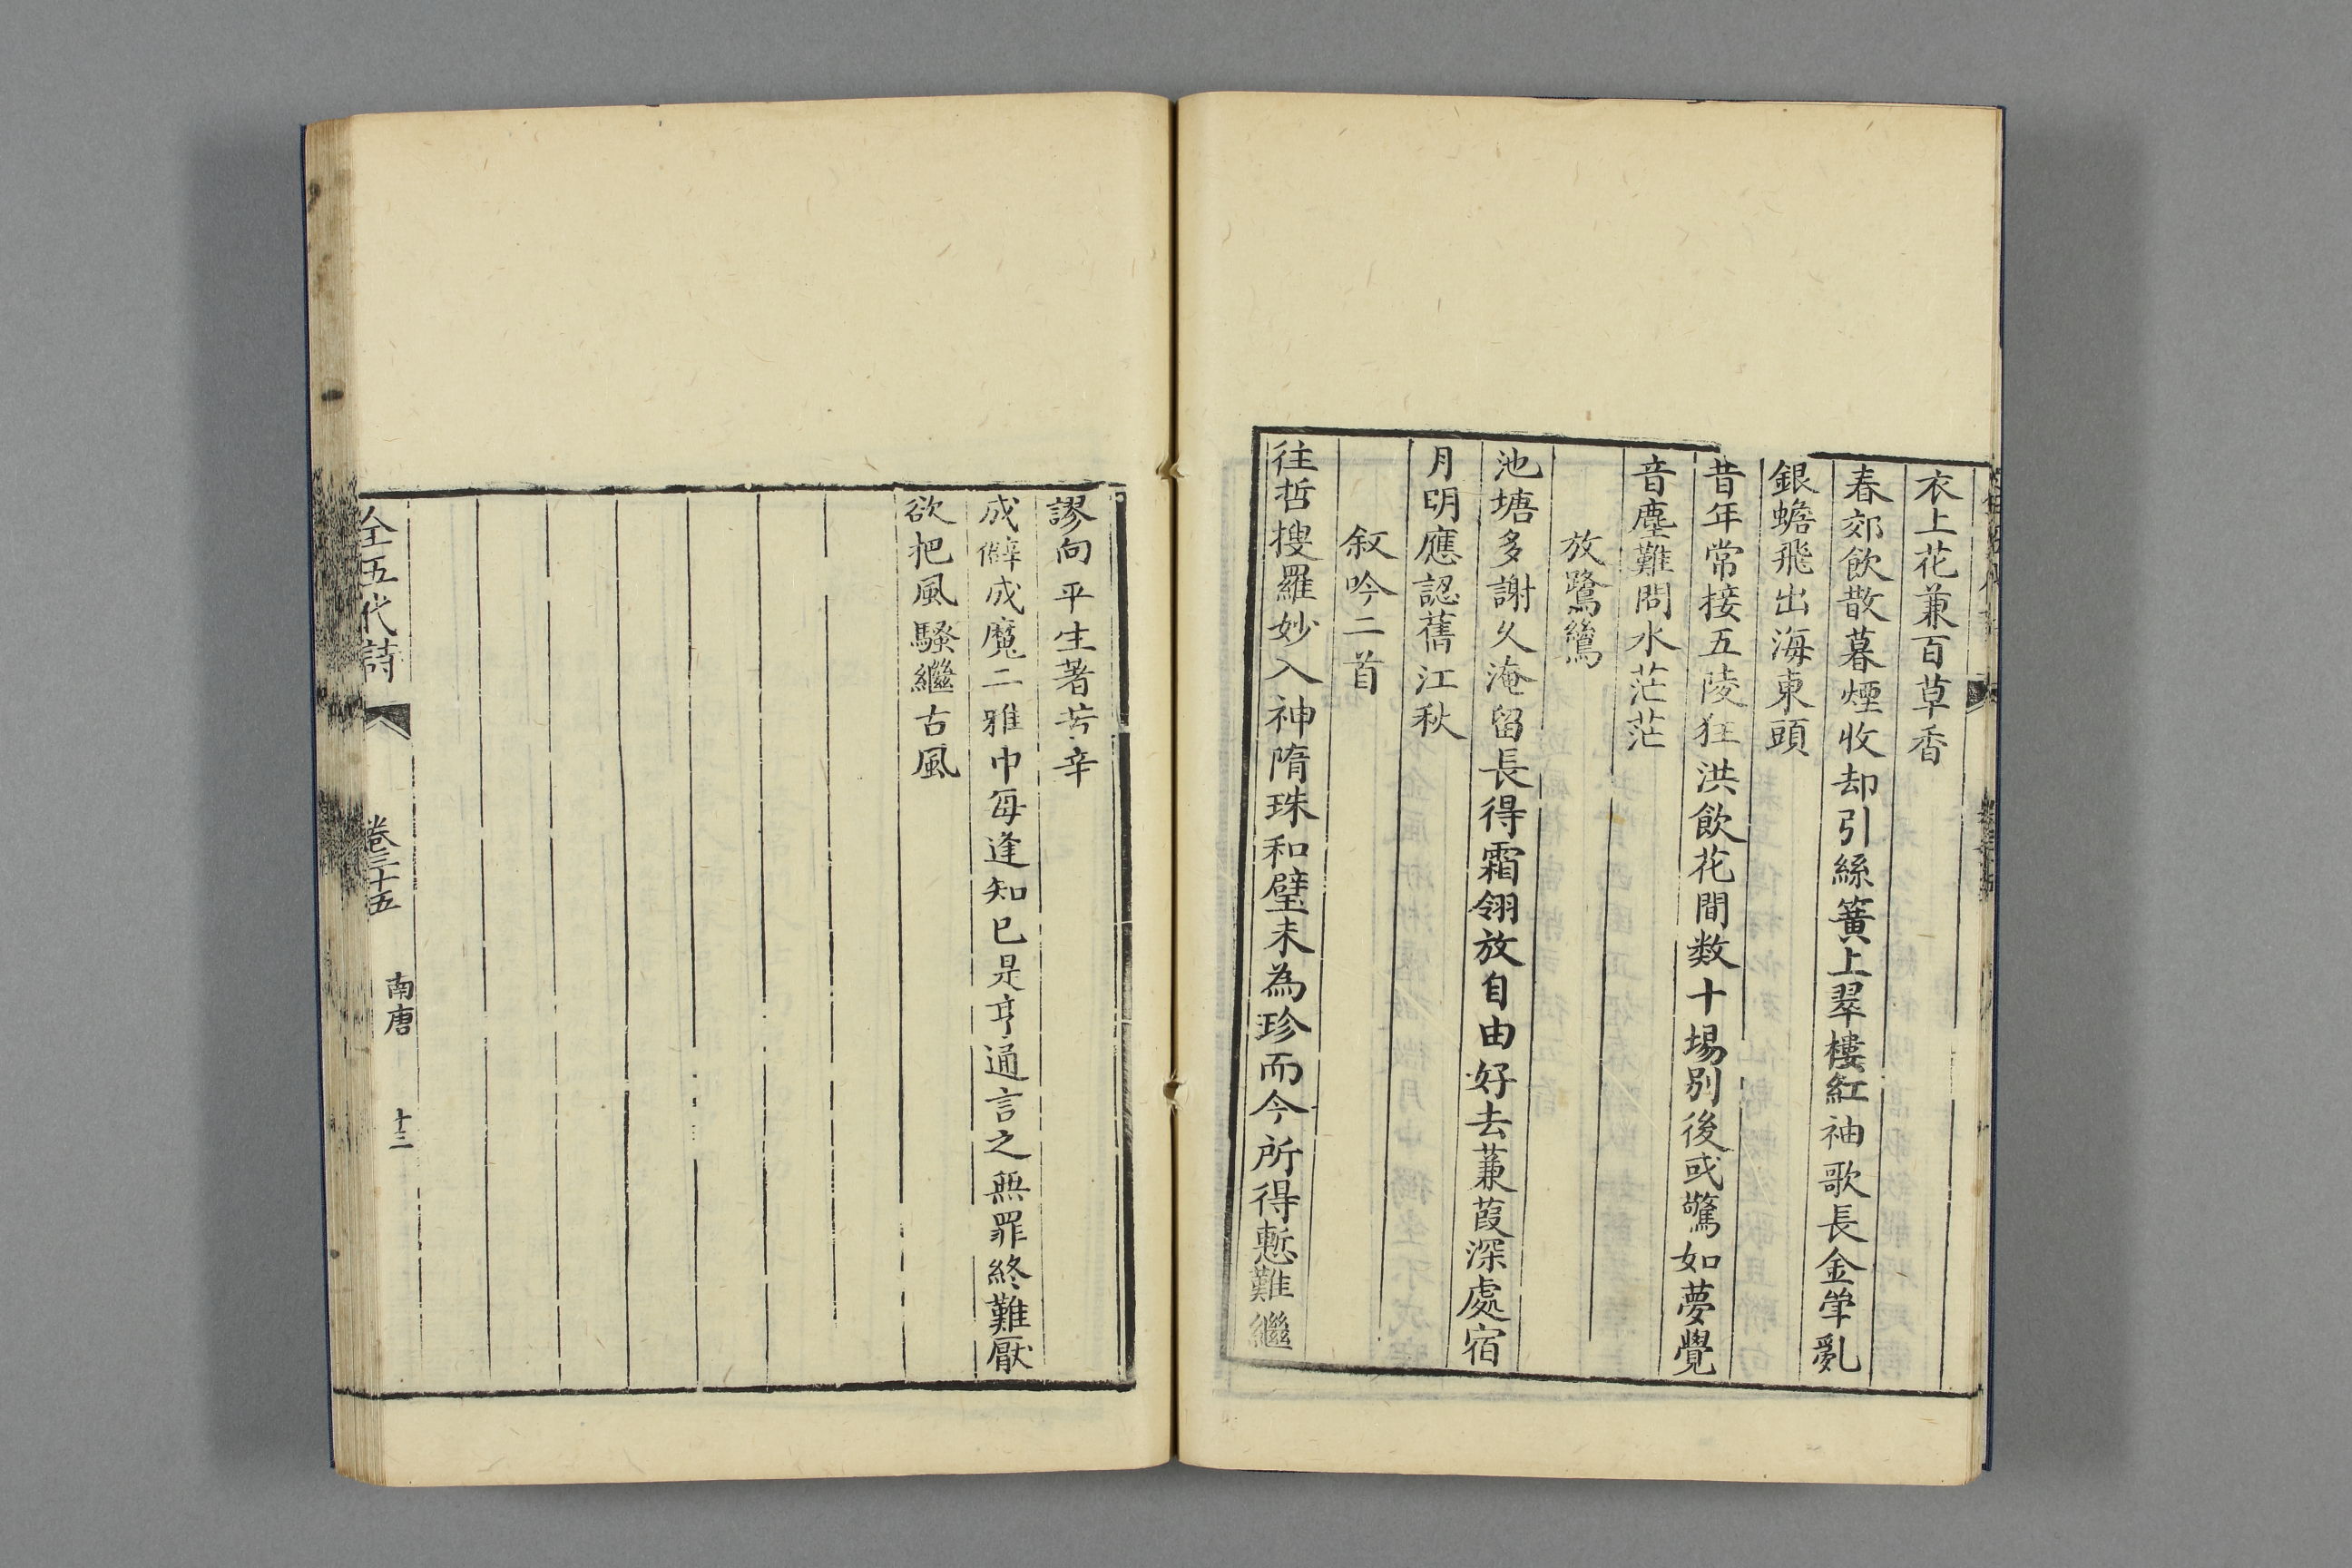 衣上花兼百草香
春郊飲散暮煙收却引絲簧上翠樓紅袖歌長金斝亂
銀蟾飛出海東頭
昔年常接五陵狂洪飲花間數十場別後或驚如夢覺
音塵難問水茫茫
放鷺鷥
池塘多謝久淹留長得霜翎放自由好去蒹葭深處宿
月明應認舊江秋
叙吟二首
往哲搜羅妙入神隋珠和璧未為珍而今所得慙難繼
謬向平生著苦辛
成僻成魔二雅中每逢知已是亨通言之無罪終難厭
欲把風騷繼古風
全五代詩
卷三十五
南唐
十三